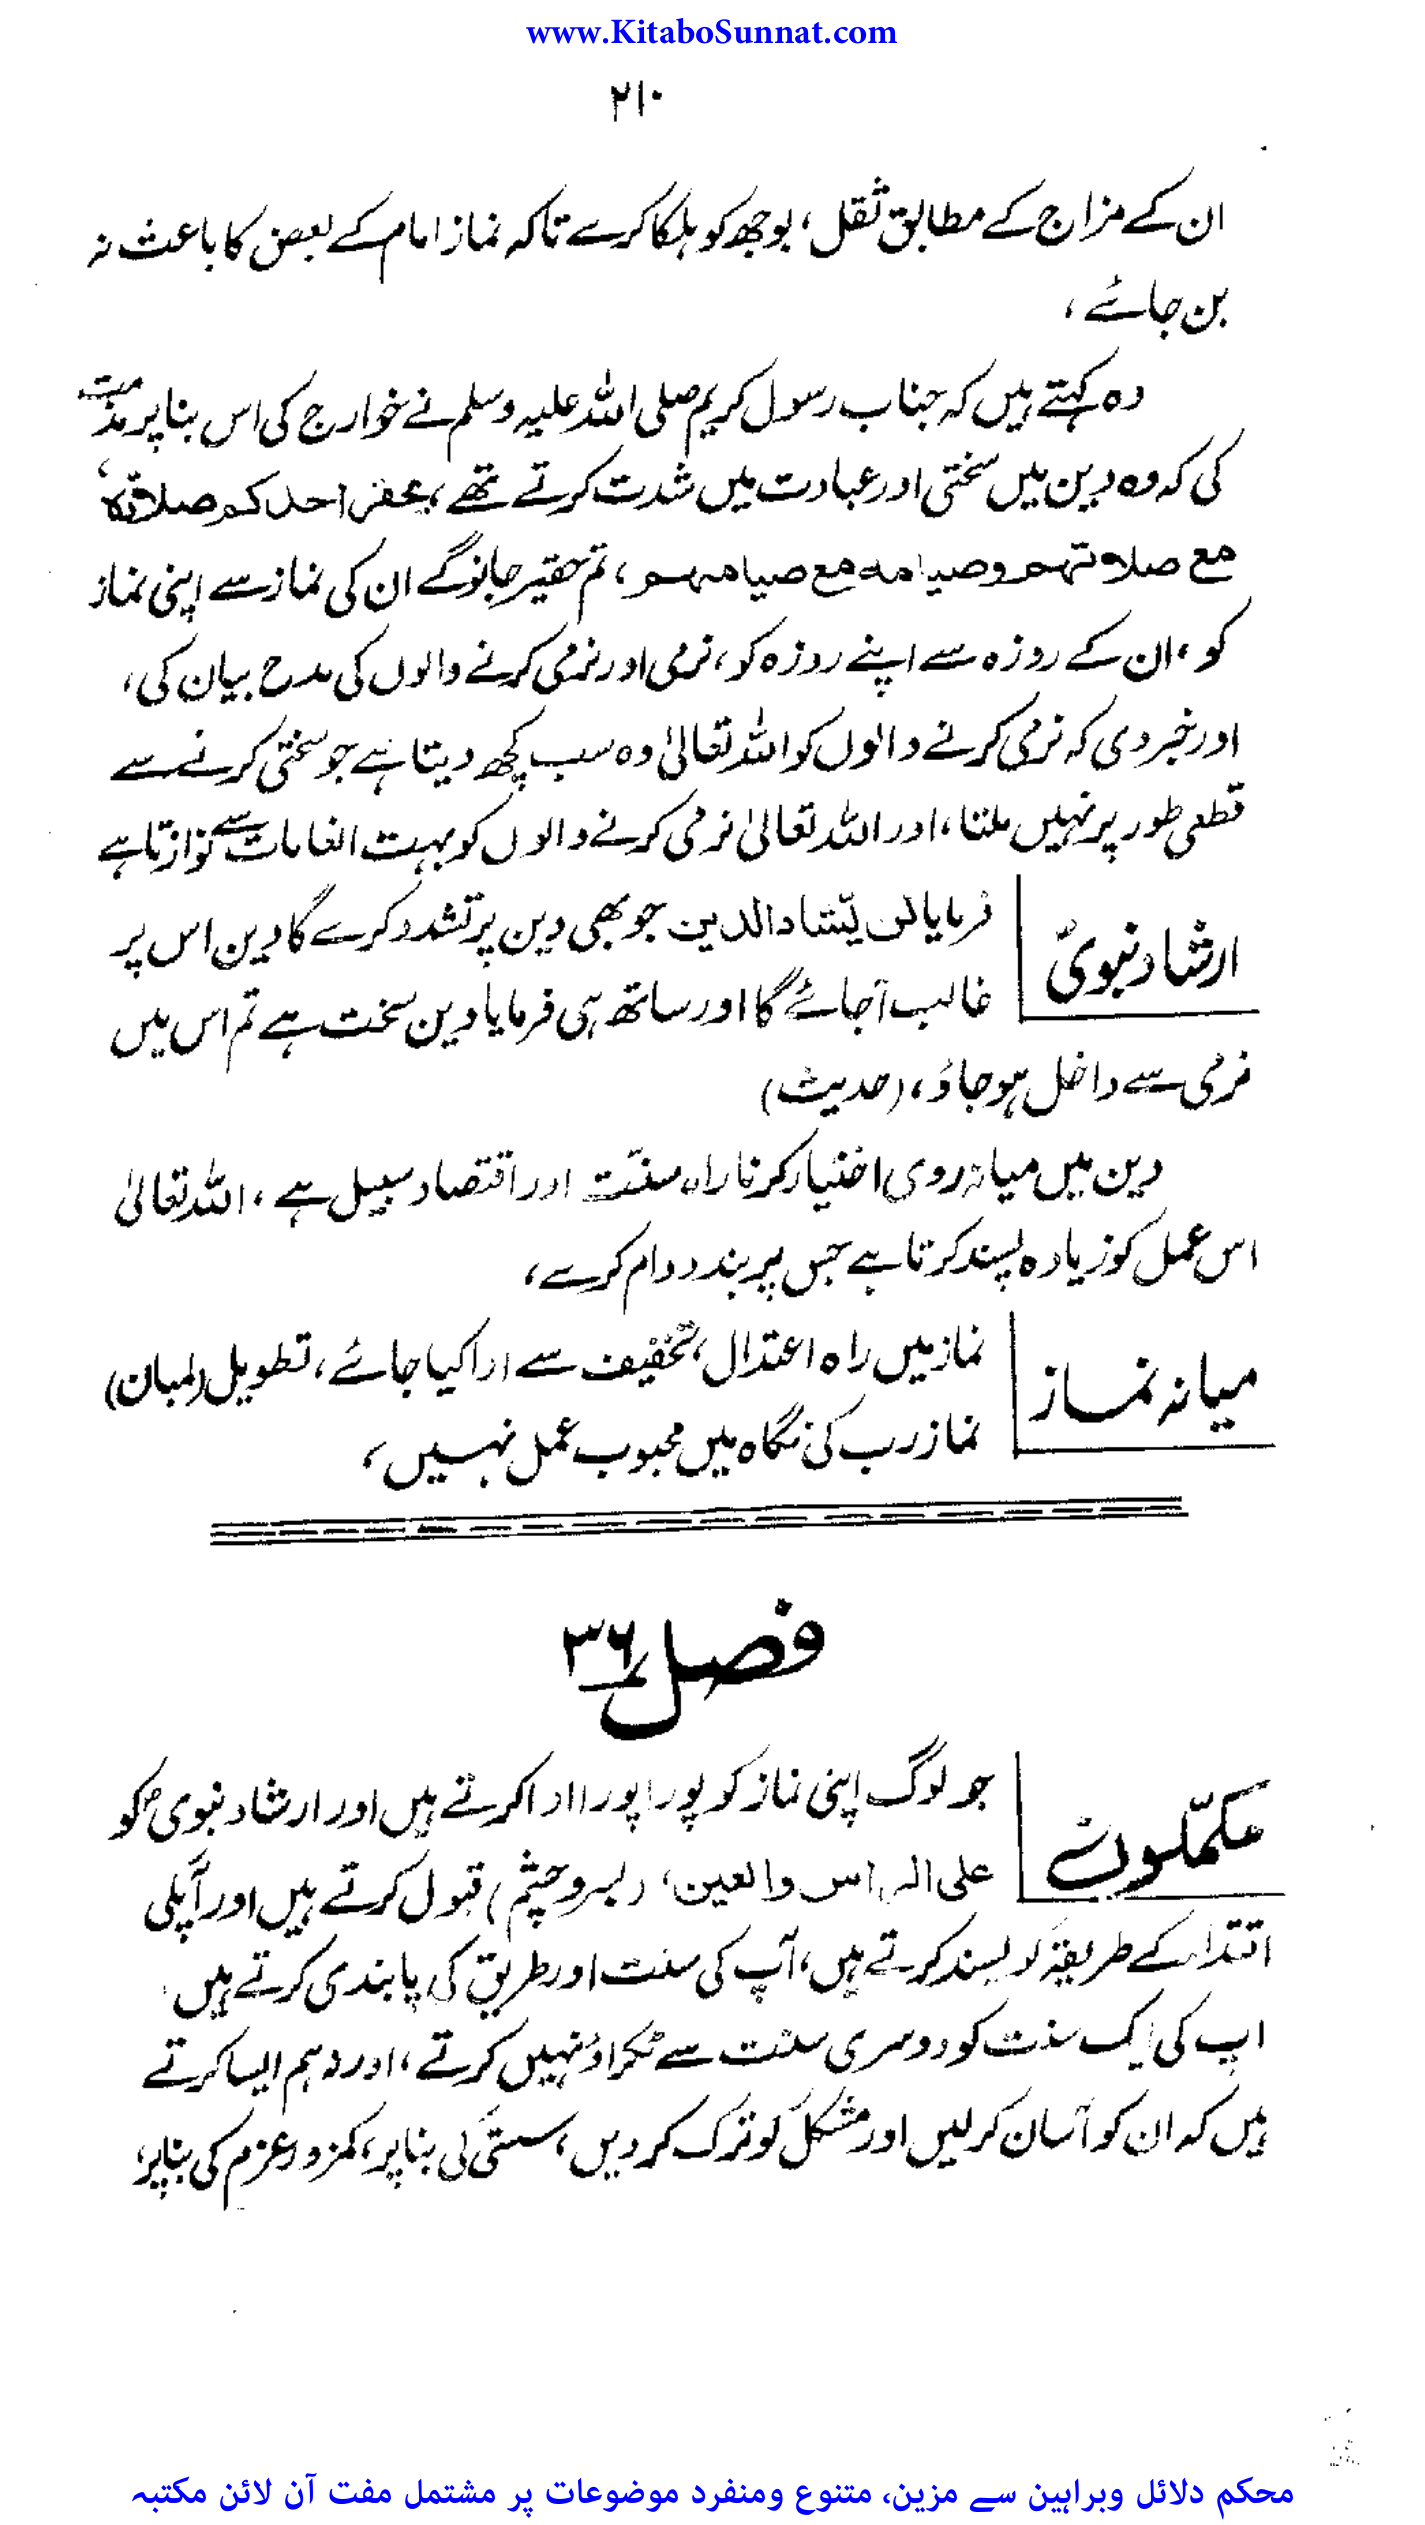 www.KitaboSunnat.com
۲۱۰
ان کے مزاج کے مطابق ثقل، بوجھ کو ہلکا کرے تاکہ نماز امام کے بعض کا باعث نہ
بن جائے،
وہ کہتے ہیں کہ جناب رسول کریم صلی اللہ علیہ وسلم نے خوارج کی اس بنا پر مذمت
کی کہ وہ دین میں سختی اور عبادت میں شدت کرتے تھے، یحقر احدکم صلاتہ
مع صلاتہم وصیامہ مع صیامہم، تم حقیر جانو گے ان کی نماز سے اپنی نماز
کو، ان کے روزہ سے اپنے روزہ کو، نرمی اور نرمی کرنے والوں کی مدح بیان کی،
اور خبر دی کہ نرمی کرنے والوں کو اللہ تعالیٰ وہ سب کچھ دیتا ہے جو سختی کرنے سے
قطعی طور پر نہیں ملتا، اور اللہ تعالیٰ نرمی کرنے والوں کو بہت انعامات سے نوازتا ہے
ارشاد نبویؐ
فرمایا لن یّشاد الدین جو بھی دین پر تشدد کرے گا دین اس پر
غالب آجائے گا اور ساتھ ہی فرمایا دین سخت ہے تم اس میں
نرمی سے داخل ہو جاؤ، (حدیث)
دین میں میانہ روی اختیار کرنا راہ سنّت اور اقتصاد سبیل ہے، اللہ تعالیٰ
اس عمل کو زیادہ پسند کرتا ہے جس پر بندہ دوام کرے،
میانہ نماز
نماز میں راہ اعتدال، تخفیف سے ادا کیا جائے، تطویل (لمبان)
نماز رب کی نگاہ میں محبوب عمل نہیں،
فصل ۳۶
مکمّلون
جو لوگ اپنی نماز کو پورا پورا ادا کرتے ہیں اور ارشاد نبویؐ کو
علی الراس والعین، (بسر و چشم) قبول کرتے ہیں اور آپکی
اقتداء کے طریقہ کو پسند کرتے ہیں، آپ کی سنت اور طریق کی پابندی کرتے ہیں
آپ کی ایک سنت کو دوسری سنت سے ٹکراؤ نہیں کرتے، اور نہ ہم ایسا کرتے
ہیں کہ ان کو آسان کر لیں اور مشکل کو ترک کر دیں، سستی کی بنا پر، کمزور عزم کی بنا پر،
محکم دلائل وبراہین سے مزین، متنوع ومنفرد موضوعات پر مشتمل مفت آن لائن مکتبہ